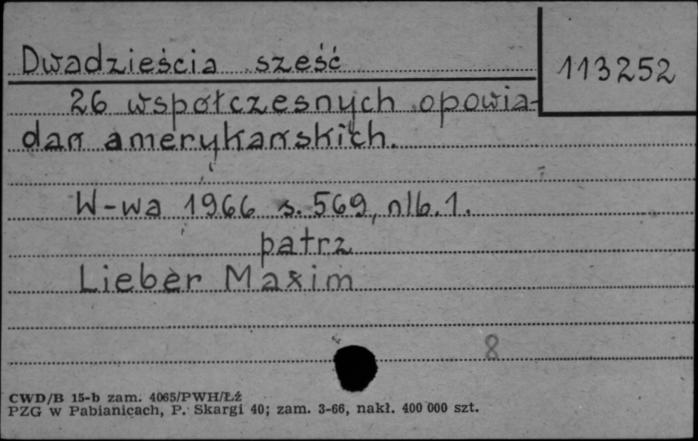 Dwadzieścia sześć
113252
26 współczesnych opowia-
dań amerykańskich.
W-wa 1966 s. 569, nlb. 1.
patrz
Lieber Maxim
8
CWD/B 15-b zam. 4065/PWH/Łź
PZG w Pabianicach, P. Skargi 40; zam. 3-66, nakł. 400 000 szt.